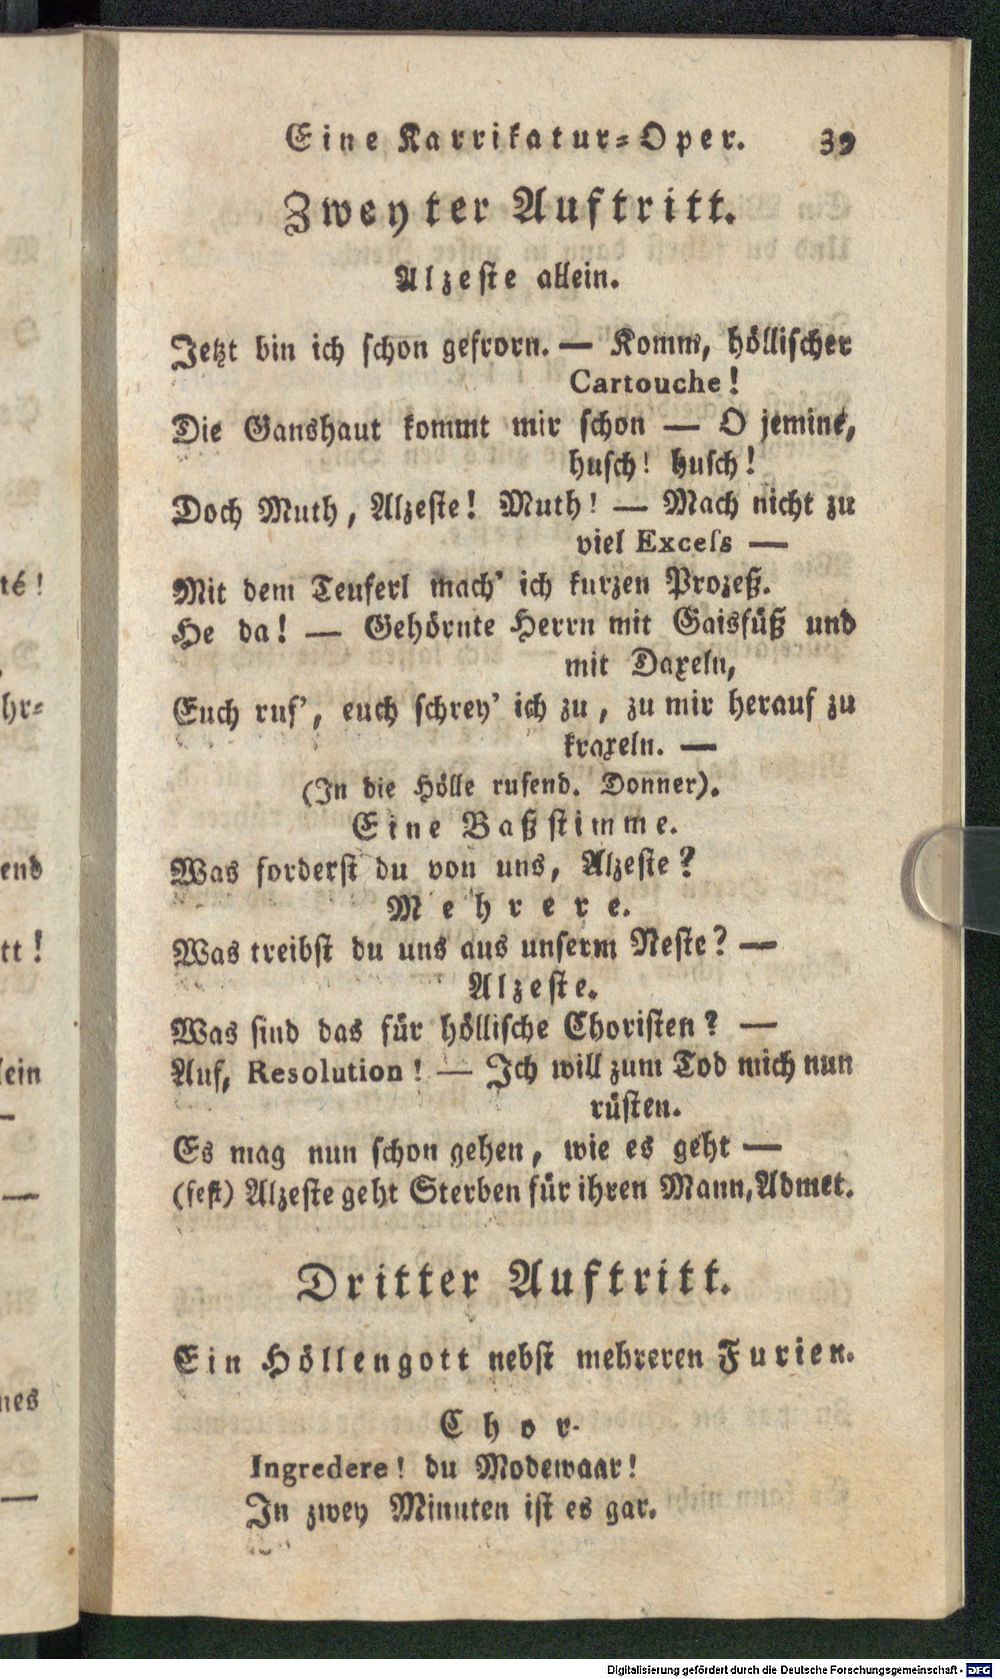 Eine Karrikatur-Oper. 39
Zweyter Auftritt.
Alzeste allein.
Jetzt bin ich schon gefrorn. — Komm, höllischer
Cartouche!
Die Ganshaut kommt mir schon — O jemine,
husch! husch!
Doch Muth, Alzeste! Muth! — Mach nicht zu
viel Excess —
Mit dem Teuferl mach' ich kurzen Prozeß.
He da! — Gehörnte Herrn mit Gaisfüß und
mit Daxeln,
Euch ruf', euch schrey' ich zu, zu mir herauf zu
kraxeln. —
(In die Hölle rufend. Donner).
Eine Baßstimme.
Was forderst du von uns, Alzeste?
Mehrere.
Was treibst du uns aus unserm Neste? —
Alzeste.
Was sind das für höllische Choristen? —
Auf, Resolution! — Ich will zum Tod mich nun
rüsten.
Es mag nun schon gehen, wie es geht —
(fest) Alzeste geht Sterben für ihren Mann, Admet.
Dritter Auftritt.
Ein Höllengott nebst mehreren Furien.
Chor.
Ingredere! du Modewaar!
In zwey Minuten ist es gar.
té!
hr-
end
tt!
lein
—
—
nes
—
Digitalisierung gefördert durch die Deutsche Forschungsgemeinschaft - DFG